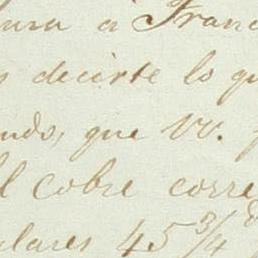 a Franc
decirte lo qu
que VV.
l cobre corre
lares 45 3/4